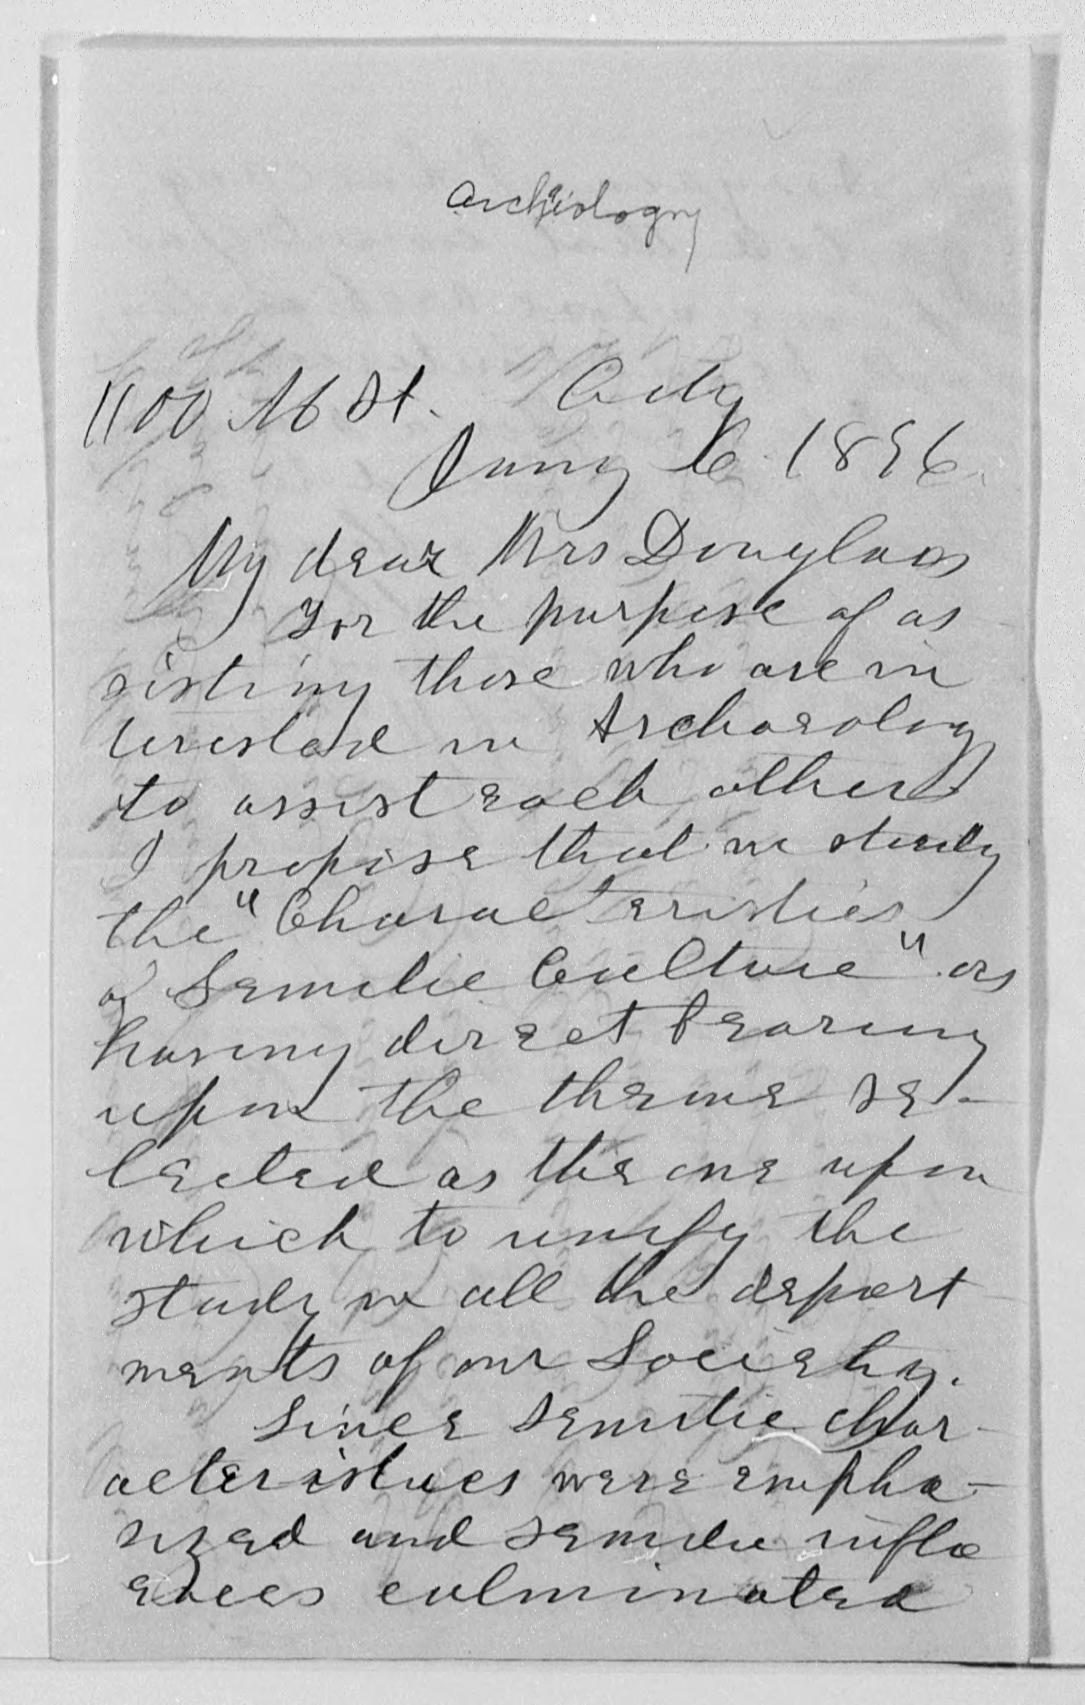 Archeiology
1100 M St. City
Jany 6 1896.
My dear Mrs Douglass
For the purpose of as
sisting those who are in
terested in Archaeology
to assist each other
I propose that we study
the "Characteristics
of Semitic Culture" as
having direct bearing
upon the theme se-
lected as the one upon
which to unify the
study in all the depart
ments of our Society.
Since Semitic char-
acteristics were empha-
sized and Semitic influ
ences culminated